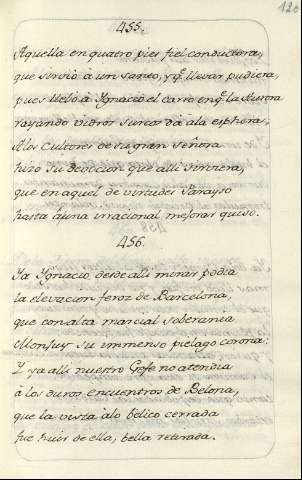 126
455.
Aquella en quatro pies fiel conductora,
que sirvió à un santo, y q̃. llevar pudiera,
pues llevó à Ygnacio el carro en q̃. la Aurora
rayando vidros surcos dà ala esphera;
Alos Cultores de su gran señora
hizo su devocion que alli sirviera,
que en aquel de virtudes Parayso
hasta aJuna irracional mejorar quiso.
456.
Ya Ygnacio desde alli mirar podia
la elevacion feroz de Barcelona,
que con alta marcial soberania
Monjuy su immenso pielago corona:
Y ya alli nuestro Gefe no atendia
à los duros encuentros de Belona,
que la vista alo belico cerrada
fue huir de ella, bella retirada.